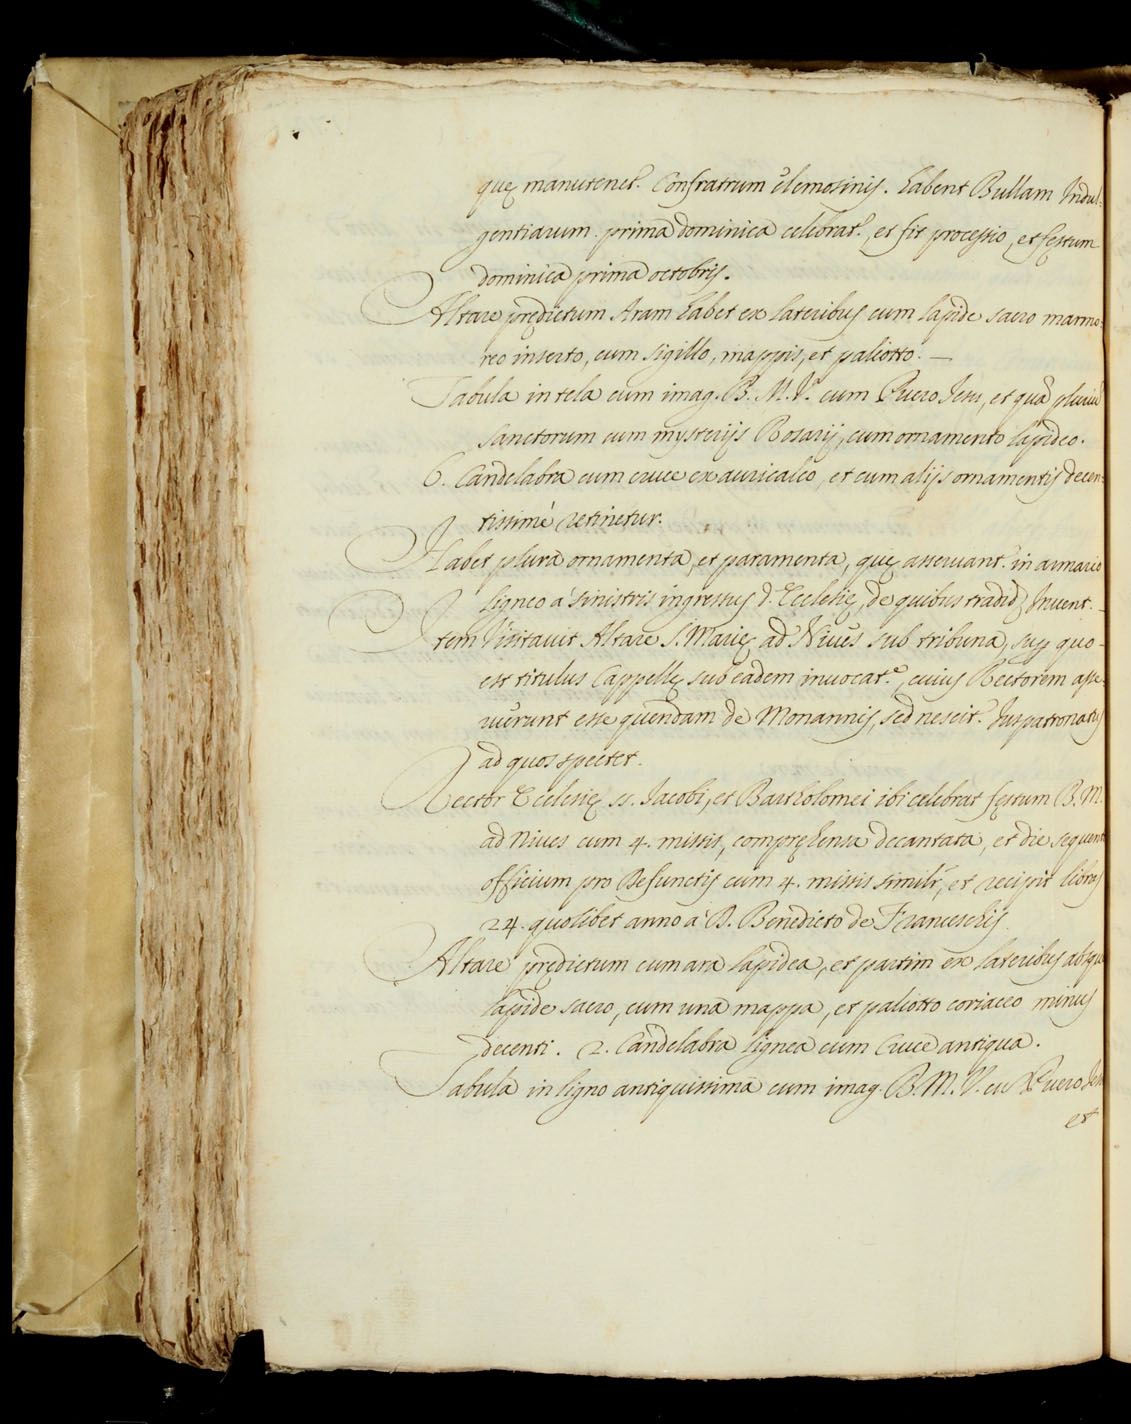 quę manutenet.r Confratrum elemosinis. habent Bullam Indul-
gentiarum. prima dominica celebrat.r, et fit processio, et festum
dominica prima octobris.
Altare prędictum Aram habet ex lateribus cum lapide sacro marmo-
reo inserto, cum sigillo, mappis, et paliotto. —
Tabula in tela cum imag. B. M. V. cum Puero Jesu, et qua pluriū
Sanctorum cum mysterijs Rosarij, cum ornamento lapideo.
6. Candelabra cum cruce ex auricalco, et cum alijs ornamentis decen-
tissimè retinetur.
Habet plura ornamenta, et paramenta, quę asseruant.r in armario
ligneo a sinistris ingressus d. Ecclesię, de quibus tradid. Invent.
Item Visitauit Altare S. Marię ad Niues sub tribuna, sup quo
est titulus Cappellę sub eadem inuocat.e, cuius Rectorem asse-
uerunt esse quendam de Monannis, sed nescit.r Juspatronatus
ad quos spectet.
Rector Ecclesię ss. Jacobi, et Bartholomei ibi celebrat festum B. M.
ad Niues cum 4. missis, compręhensa decantata, et die sequenti
officium pro Defunctis cum 4. missis similr, et recipit libras
24. quolibet anno a D. Benedicto de Franceschis.
Altare prędictum cum ara lapidea, et partim ex lateribus absque
lapide sacro, cum una mappa, et paliotto coriaceo minus
decenti. 2. Candelabra lignea cum Cruce antiqua.
Tabula in ligno antiquissima cum imag. B. M. V. cu Puero Jesu
et